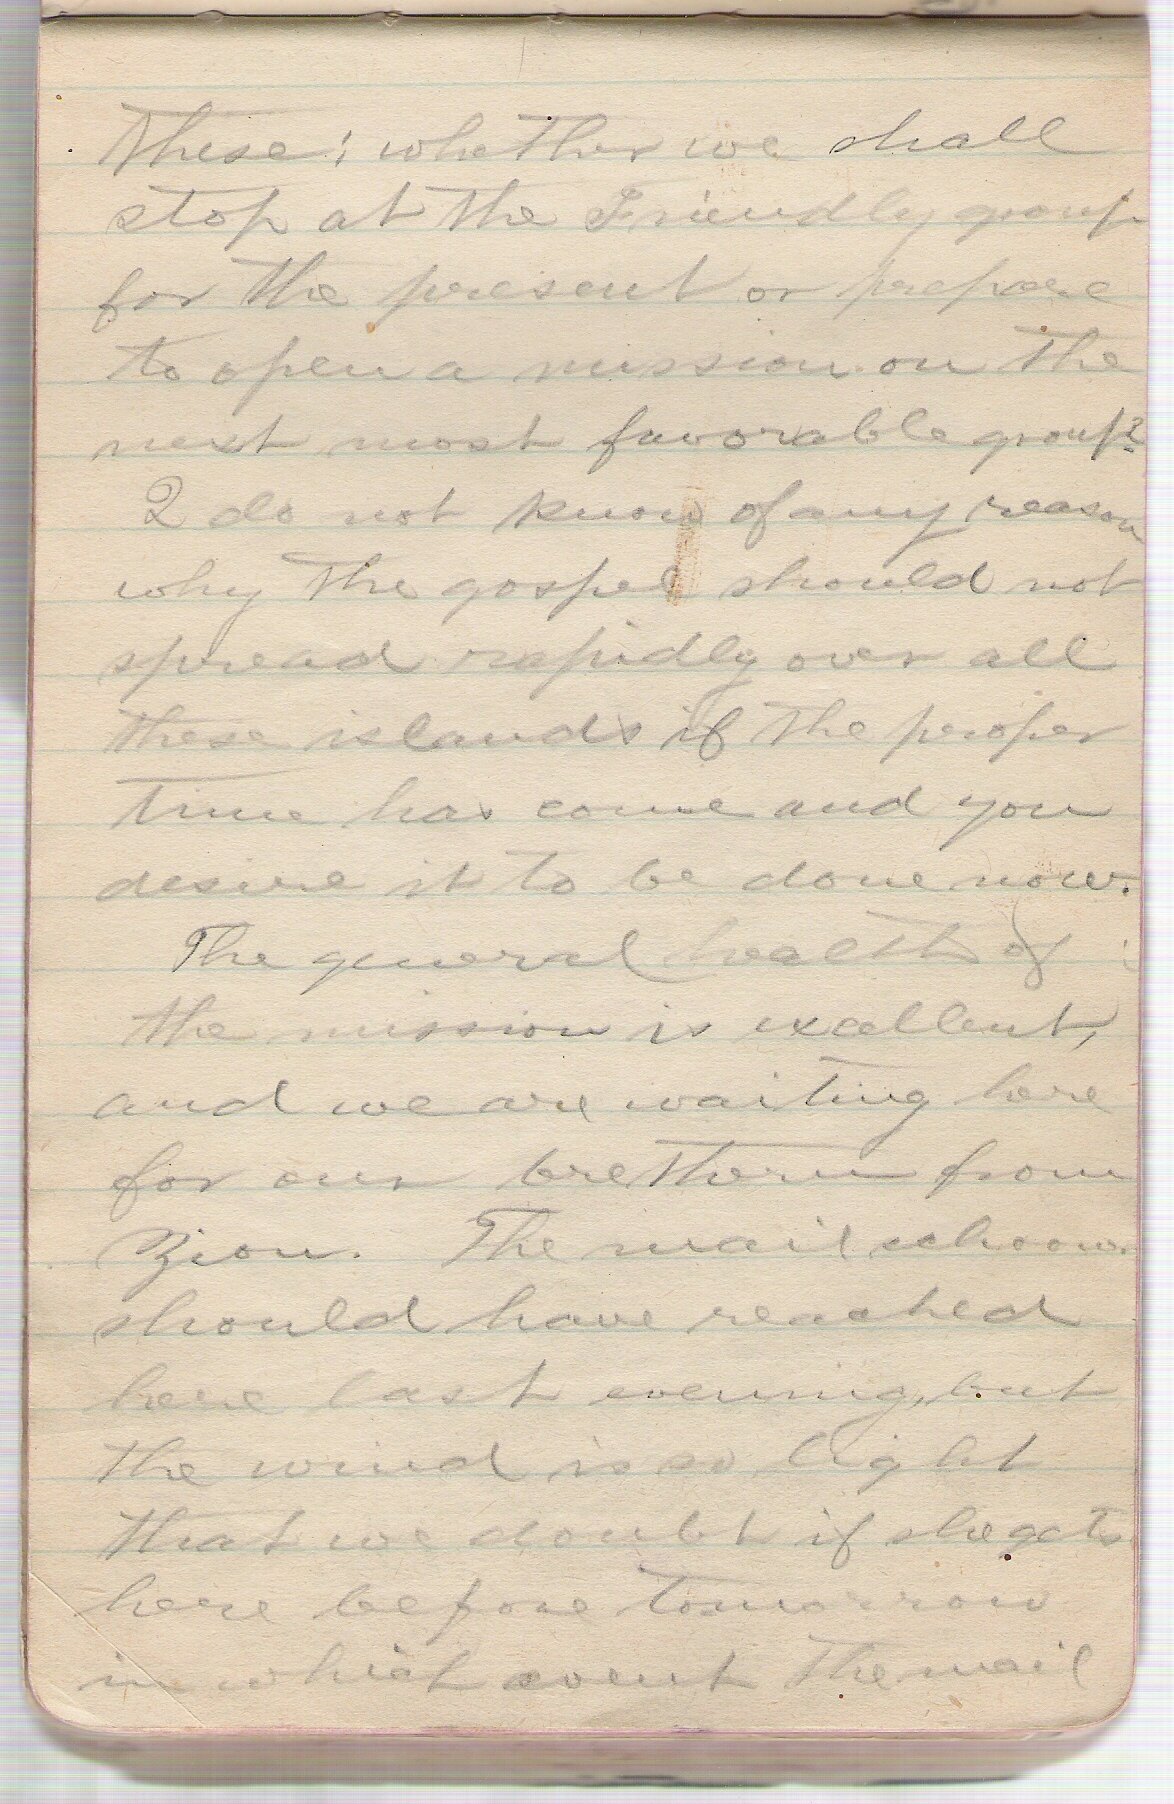 these; whether we shall
stop at the Friendly group
for the present or prepare
to open a mission on the
next most favorable group?
I do not know of any reason
why the gospel should not
spread rapidly over all
these islands if the proper
time has come and you
desire it to be done now.
The general health of
the mission is excellent,
and we are waiting here
for our brethern from
Zion. The mail schoon.
should have reached
here last evening, but
the wind is so light
that we doubt if she gets
here before tomorrow
in which event the mail